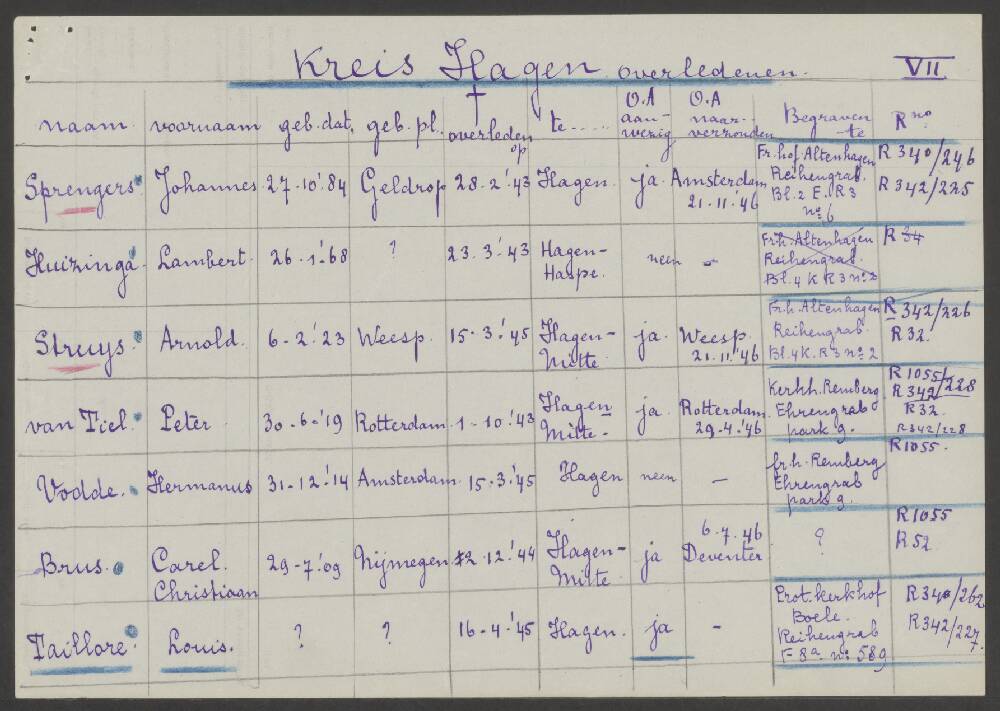 Kreis Hagen overledenen. VII
naam. voornaam geb. dat. geb. pl. † overleden op te ..... O.A aanwezig O.A naar verzonden Begraven te R no
Sprengers Johannes 27-10-'84 Geldrop 28-2-'43 Hagen. ja. Amsterdam 21-11-'46
Fr. hof. Altenhagen
Reihengrab.
Bl. 2 E. R 3
no 6
R 340/246
R 342/225
Huizinga. Lambert. 26-1-'68 ? 23.3-'43 Hagen-Haspe. neen -
Fr. h. Altenhagen
Reihengrab.
Bl. 4 K R 3 no 2
R 34
Struys. Arnold. 6-2-'23 Weesp. 15-3-'45 Hagen-Mitte ja. Weesp. 21-11-'46
Fr. h. Altenhagen
Reihengrab.
Bl. 4 K. R 3 no 2
R 342/226
R 32.
van Tiel. Peter 30-6-'19 Rotterdam. 1-10-'43 Hagen-Mitte- ja. Rotterdam 29-4-'46
Kerkh. Remberg
Ehrengrab
park g.
R 1055
R 342/228
R 32.
R 342/228
Vodde. Hermanus 31-12-'14 Amsterdam. 15-3-'45 Hagen neen -
fr. h. Remberg
Ehrengrab
park g.
R 1055.
Brus. Carel. Christiaan 29-7-'09 Nijmegen 2-12-'44 Hagen-Mitte ja 6-7-46 Deventer ?
R 1055
R 52.
Taillore. Louis. ? ? 16-4-'45 Hagen. ja -
Prot. kerkhof
Boele.
Reihengrab
F 8a. no 589
R 340/262
R 342/227.